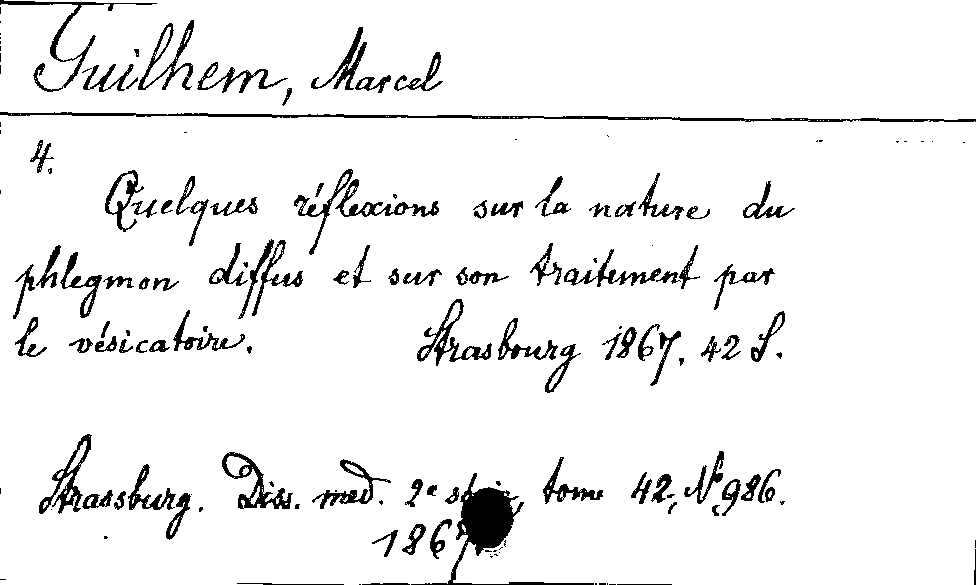 Guilhem, Marcel
4.
Quelques réflexions sur la nature du
phlegmon diffus et sur son traitement par
le vésicatoire. Strasbourg 1867. 42 S.
Strassburg. Diss. med. 2e série, tome 42, No 986.
1867.